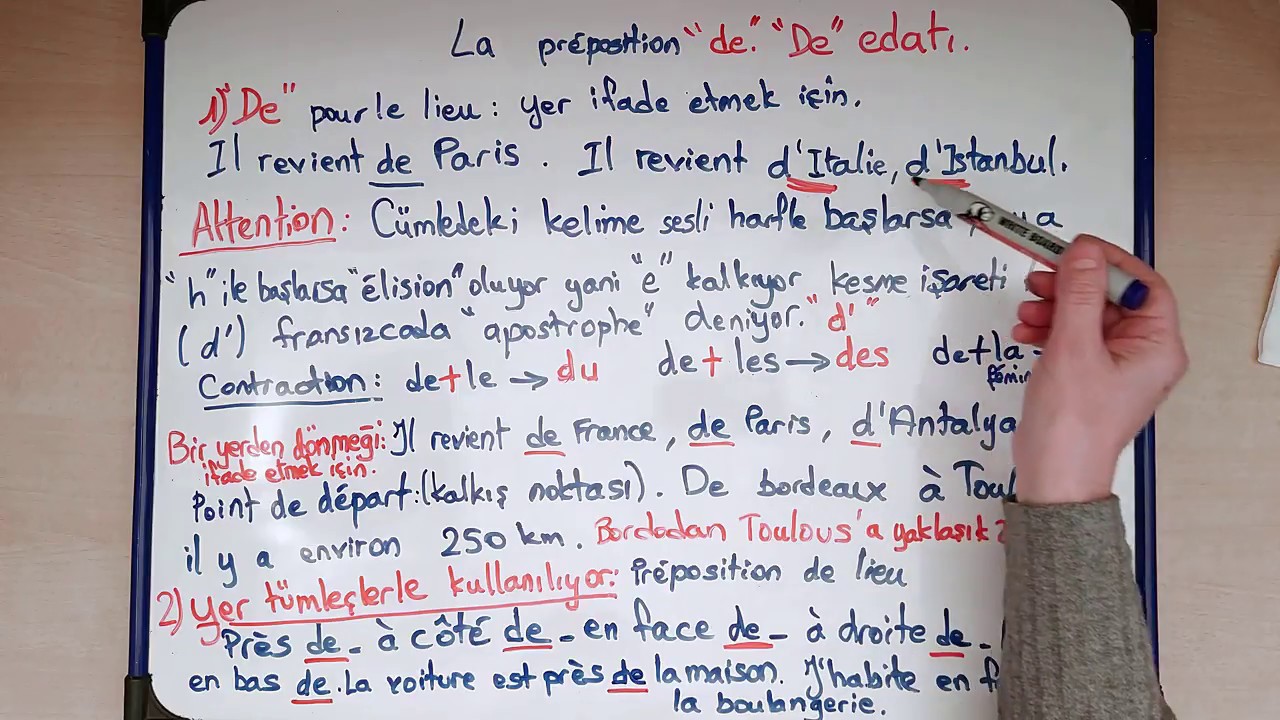 La préposition "de." "De" edatı.
1) "De" pour le lieu : yer ifade etmek için.
Il revient de Paris . Il revient d'Italie, d'Istanbul.
Attention : Cümledeki kelime sesli harfle başlarsa
"h" ile başlarsa "élision" oluyor yani "e" kalkıyor kesme işareti
(d') fransızcada "apostrophe" deniyor. "d'"
Contraction : de+le → du de + les → des de+la
Bir yerden dönmeği: Il revient de France , de Paris , d'Antalya
ifade etmek için.
Point de départ : (kalkış noktası) . De bordeaux à
il y a environ 250 km . Bordodan Toulous'a yaklaşık
2) yer tümleçlerle kullanılıyor: Préposition de lieu
Près de - à côté de - en face de - à droite de -
en bas de . La voiture est près de la maison. J'habite en
la boulangerie.